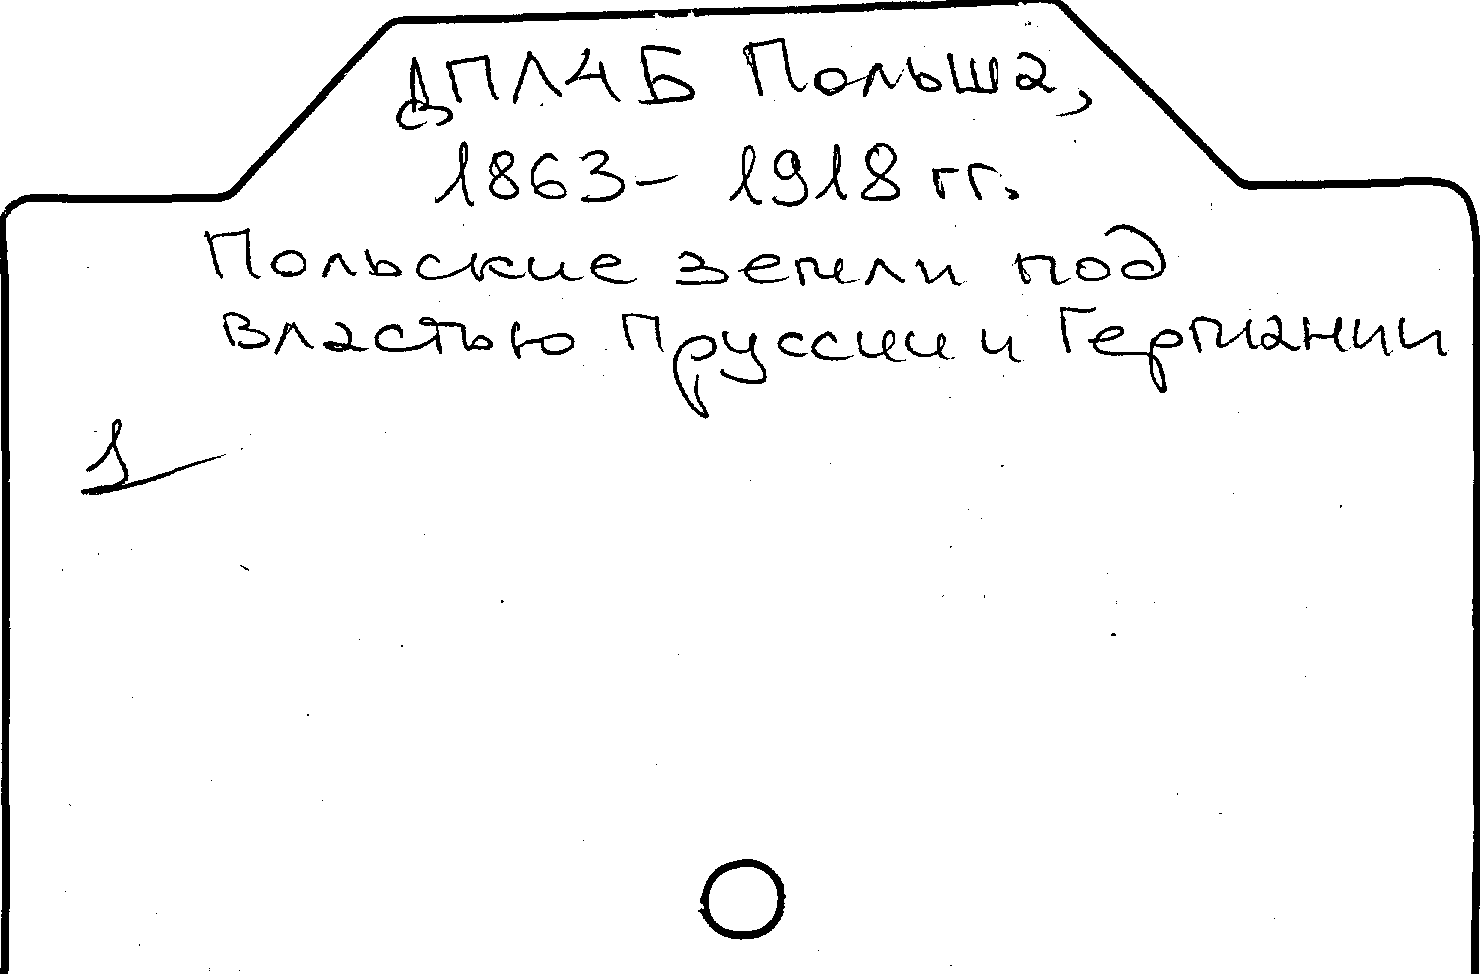 ДПЛ4Б Польша,
1863– 1918 гг.
Польские земли под
властью Пруссии и Германии
1